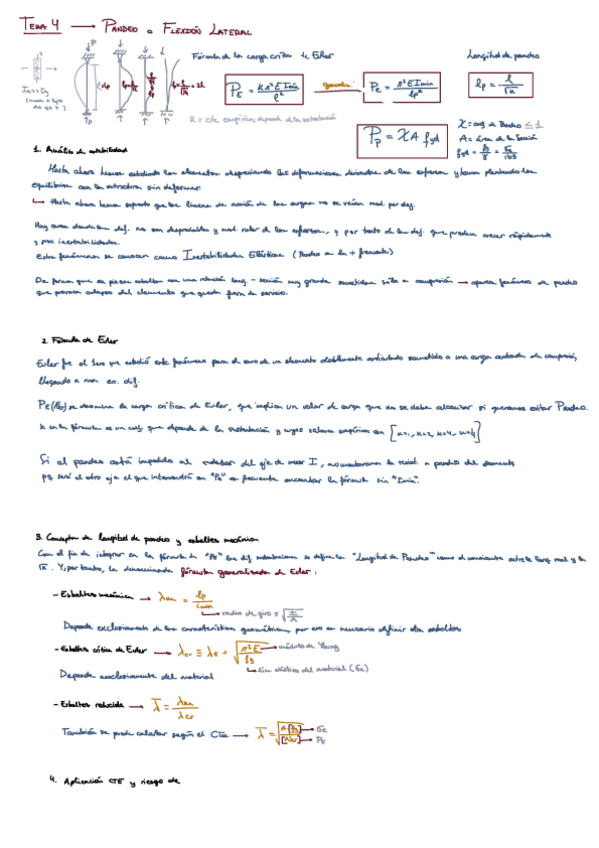 Tema 4 → Pandeo o Flexión Lateral
Fórmula de la carga crítica de Euler
Longitud de pandeo
P_E = K π² E I min / l²
generaliza
P_E = π² E I min / lp²
lp = l / √K
K = cte empírica, depende de la sustentación
P_P = χ A fyd
χ = coef de Pandeo ≤ 1
A = área de la sección
1. Análisis de estabilidad
Hasta ahora hemos estudiado los elementos despreciando las deformaciones derivadas de los esfuerzos y hemos planteado los
equilibrios con la estructura sin deformar.
→ Hasta ahora hemos supuesto que las líneas de acción de las cargas no se veían mod. por def.
Hay casos donde las def. no son despreciables y mod. valor de los esfuerzos, y por tanto de las def. que pueden crecer rápidamente
y prov. inestabilidades.
Estos fenómenos se conocen como Inestabilidades Elásticas (Pandeo es la + frecuente)
De forma que en piezas esbeltas con una relación long. - sección muy grande sometidas sólo a compresión → aparece fenómeno de pandeo
que provoca colapso del elemento que queda fuera de servicio.
2. Fórmula de Euler
Euler fue el 1ero que estudió este fenómeno para el caso de un elemento doblemente articulado sometido a una carga centrada de compresión,
llegando a una ec. dif.
se denomina la carga crítica de Euler, que implica un valor de carga que no se debe alcanzar si queremos evitar Pandeo.
K en la fórmula es un coef. que depende de la sustentación y cuyos valores empíricos son
Si el pandeo está impedido al rededor del eje de menor I, no
pq será el otro eje el que intervendrá en "PE" es frecuente encontrar la fórmula sin "Imin".
3. Conceptos de longitud de pandeo y esbeltez mecánica
Con el fin de integrar en la fórmula de "PE" las dif sustentaciones se define la "Longitud de Pandeo" como el cociente entre la long real y la
√K. Y, por tanto, la denominada fórmula generalizada de Euler:
- Esbeltez mecánica → λm = lp / imin
→ radio de giro = √(I/A)
Depende exclusivamente de las características geométricas, por eso es necesario definir otra esbeltez.
- Esbeltez crítica de Euler → λcr ≡ λE = √(π² E / fy) → módulo de Young
→ lím elástico del material (σe)
Depende exclusivamente del material
- Esbeltez reducida → λ̄ = λm / λcr
También se puede calcular según el CTE → λ̄ = √(A fy / Ncr) → σe → PE
4. Aplicación CTE y riesgo de